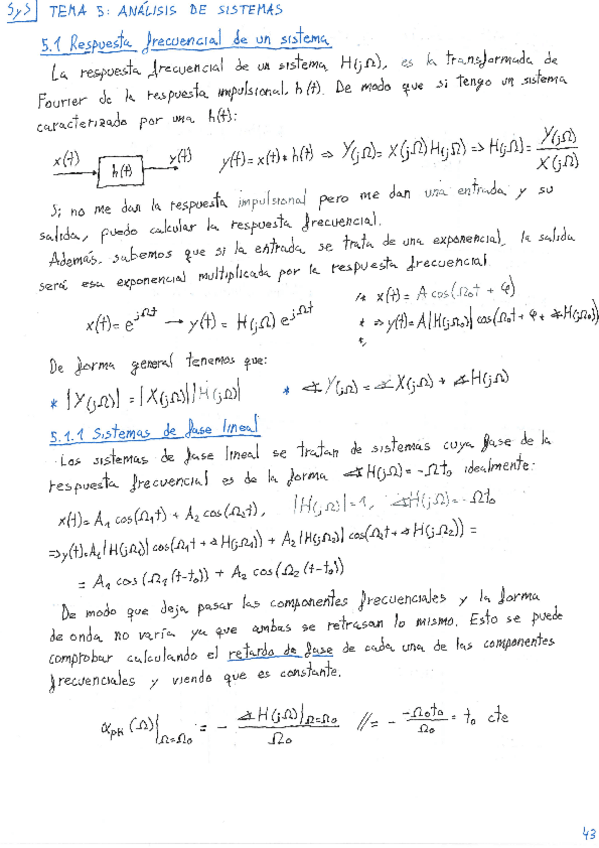 SyS TEMA 5: ANÁLISIS DE SISTEMAS
5.1 Respuesta frecuencial de un sistema
La respuesta frecuencial de un sistema H(jΩ), es la transformada de
Fourier de la respuesta impulsional, h(t). De modo que si tengo un sistema
caracterizado por una h(t):
x(t) → h(t) → y(t) y(t) = x(t) * h(t) ⇒ Y(jΩ) = X(jΩ) H(jΩ) ⇒ H(jΩ) = Y(jΩ) / X(jΩ)
Si no me dan la respuesta impulsional pero me dan una entrada y su
salida, puedo calcular la respuesta frecuencial.
Además, sabemos que si la entrada se trata de una exponencial, la salida
será esa exponencial multiplicada por la respuesta frecuencial
* x(t) = A cos(Ω₀t + φ)
x(t) = e^{jΩt} → y(t) = H(jΩ) e^{jΩt} * ⇒ y(t) = A|H(jΩ₀)| cos(Ω₀t + φ + ∢H(jΩ₀))
De forma general tenemos que:
* |Y(jΩ)| = |X(jΩ)||H(jΩ)| * ∢Y(jΩ) = ∢X(jΩ) + ∢H(jΩ)
5.1.1 Sistemas de fase lineal
Los sistemas de fase lineal se tratan de sistemas cuya fase de la
respuesta frecuencial es de la forma ∢H(jΩ) = -Ωt₀ idealmente:
x(t) = A₁ cos(Ω₁t) + A₂ cos(Ω₂t), |H(jΩ)| = 1, ∢H(jΩ) = -Ωt₀
⇒ y(t) = A₁|H(jΩ₁)| cos(Ω₁t + ∢H(jΩ₁)) + A₂|H(jΩ₂)| cos(Ω₂t + ∢H(jΩ₂)) =
= A₁ cos(Ω₁(t-t₀)) + A₂ cos(Ω₂(t-t₀))
De modo que deja pasar las componentes frecuenciales y la forma
de onda no varía ya que ambas se retrasan lo mismo. Esto se puede
comprobar calculando el retardo de fase de cada una de las componentes
frecuenciales y viendo que es constante.
α_{pH}(Ω)|_{Ω=Ω₀} = - ∢H(jΩ)|_{Ω=Ω₀} / Ω₀ // = - -Ω₀t₀ / Ω₀ = t₀ cte
43